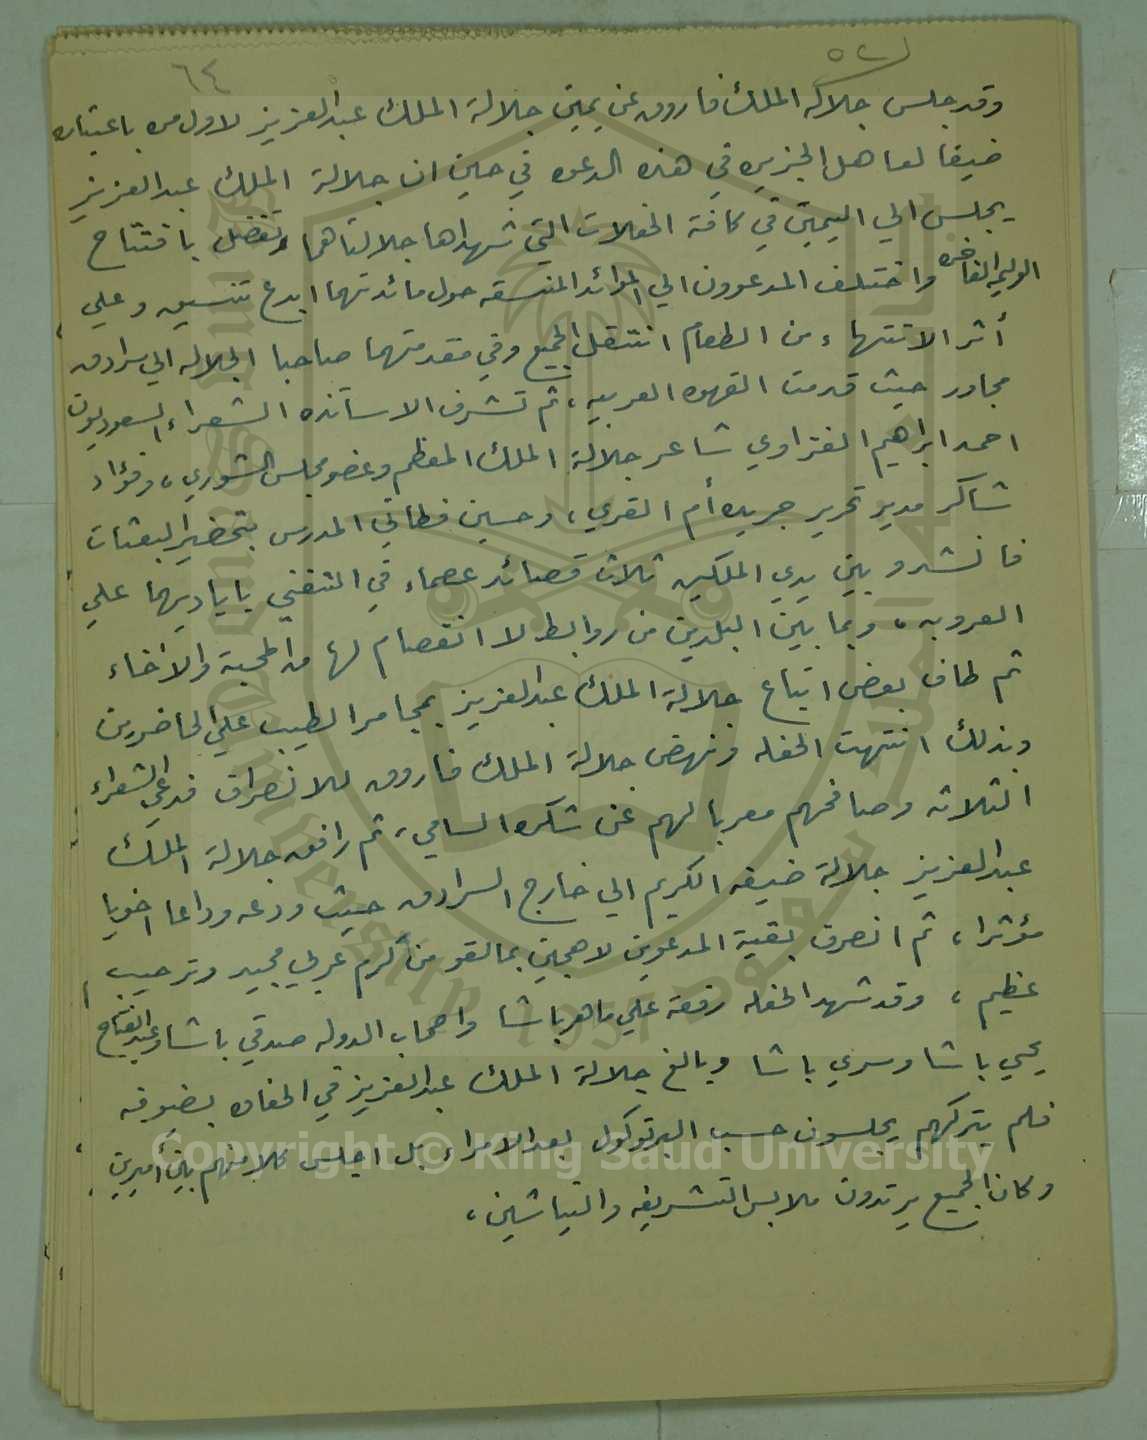 ٥٢
٦٤
وقد جلس جلالة الملك فاروق عن يمين جلالة الملك عبدالعزيز لاول مره باعتباره
ضيفا لعاهل الجزيره في هذه الدعوه في حين ان جلالة الملك عبدالعزيز
يجلس الي اليمين في كافة الحفلات التي شهداها جلالتاهما وتفضل بافتتاح
الوليمه الفاخره واختلف المدعوون الي الموائد المنسقه حول مائدتهما ابدع تنسيق وعلي
أثر الانتهاء من الطعام انتقل الجميع وفي مقدمتهما صاحبا الجلاله الي سرادق
مجاور حيث قدمت القهوه العربيه، ثم تشرف الاساتذه الشعراء السعوديون
احمد ابراهيم الغزاوي شاعر جلالة الملك المعظم وعضو مجلس الشوري، وفؤاد
شاكر مدير تحرير جريدة أم القري، وحسين فطاني المدرس بتحضير البعثات
فانشدو بين يدي الملكين ثلاث قصائد عصماء في التغني باياديهما علي
العروبه، وبما بين البلدين من روابط لا انفصام لها من المحبة والاخاء
ثم طاف بعض اتباع جلالة الملك عبدالعزيز بمجامر الطيب علي الحاضرين
وبذلك انتهت الحفله ونهض جلالة الملك فاروق للانصراف فدعي الشعراء
الثلاثه وصافحهم معربا لهم عن شكره السامي، ثم رافق جلالة الملك
عبدالعزيز جلالة ضيفه الكريم الي خارج السرادق حيث ودعه وداعا اخويا
مؤثرا، ثم انصرف بقية المدعوين لاهجين بما لقو من كرم عربي مجيد وترحيب
عظيم، وقد شهد الحفله رفعة علي ماهر باشا واصحاب الدوله صدقي باشا وعبدالفتاح
يحيي باشا وسري باشا وبالغ جلالة الملك عبدالعزيز في الحفاوه بضيوفه
فلم يتركهم يجلسون حسب البرتوكول بعد الامراء بل اجلس كلا منهم بين أميرين
وكان الجميع يرتدون ملابس التشريفه والنياشين،
جامعة الملك سعود
King Saud University 1957
Copyright © King Saud University